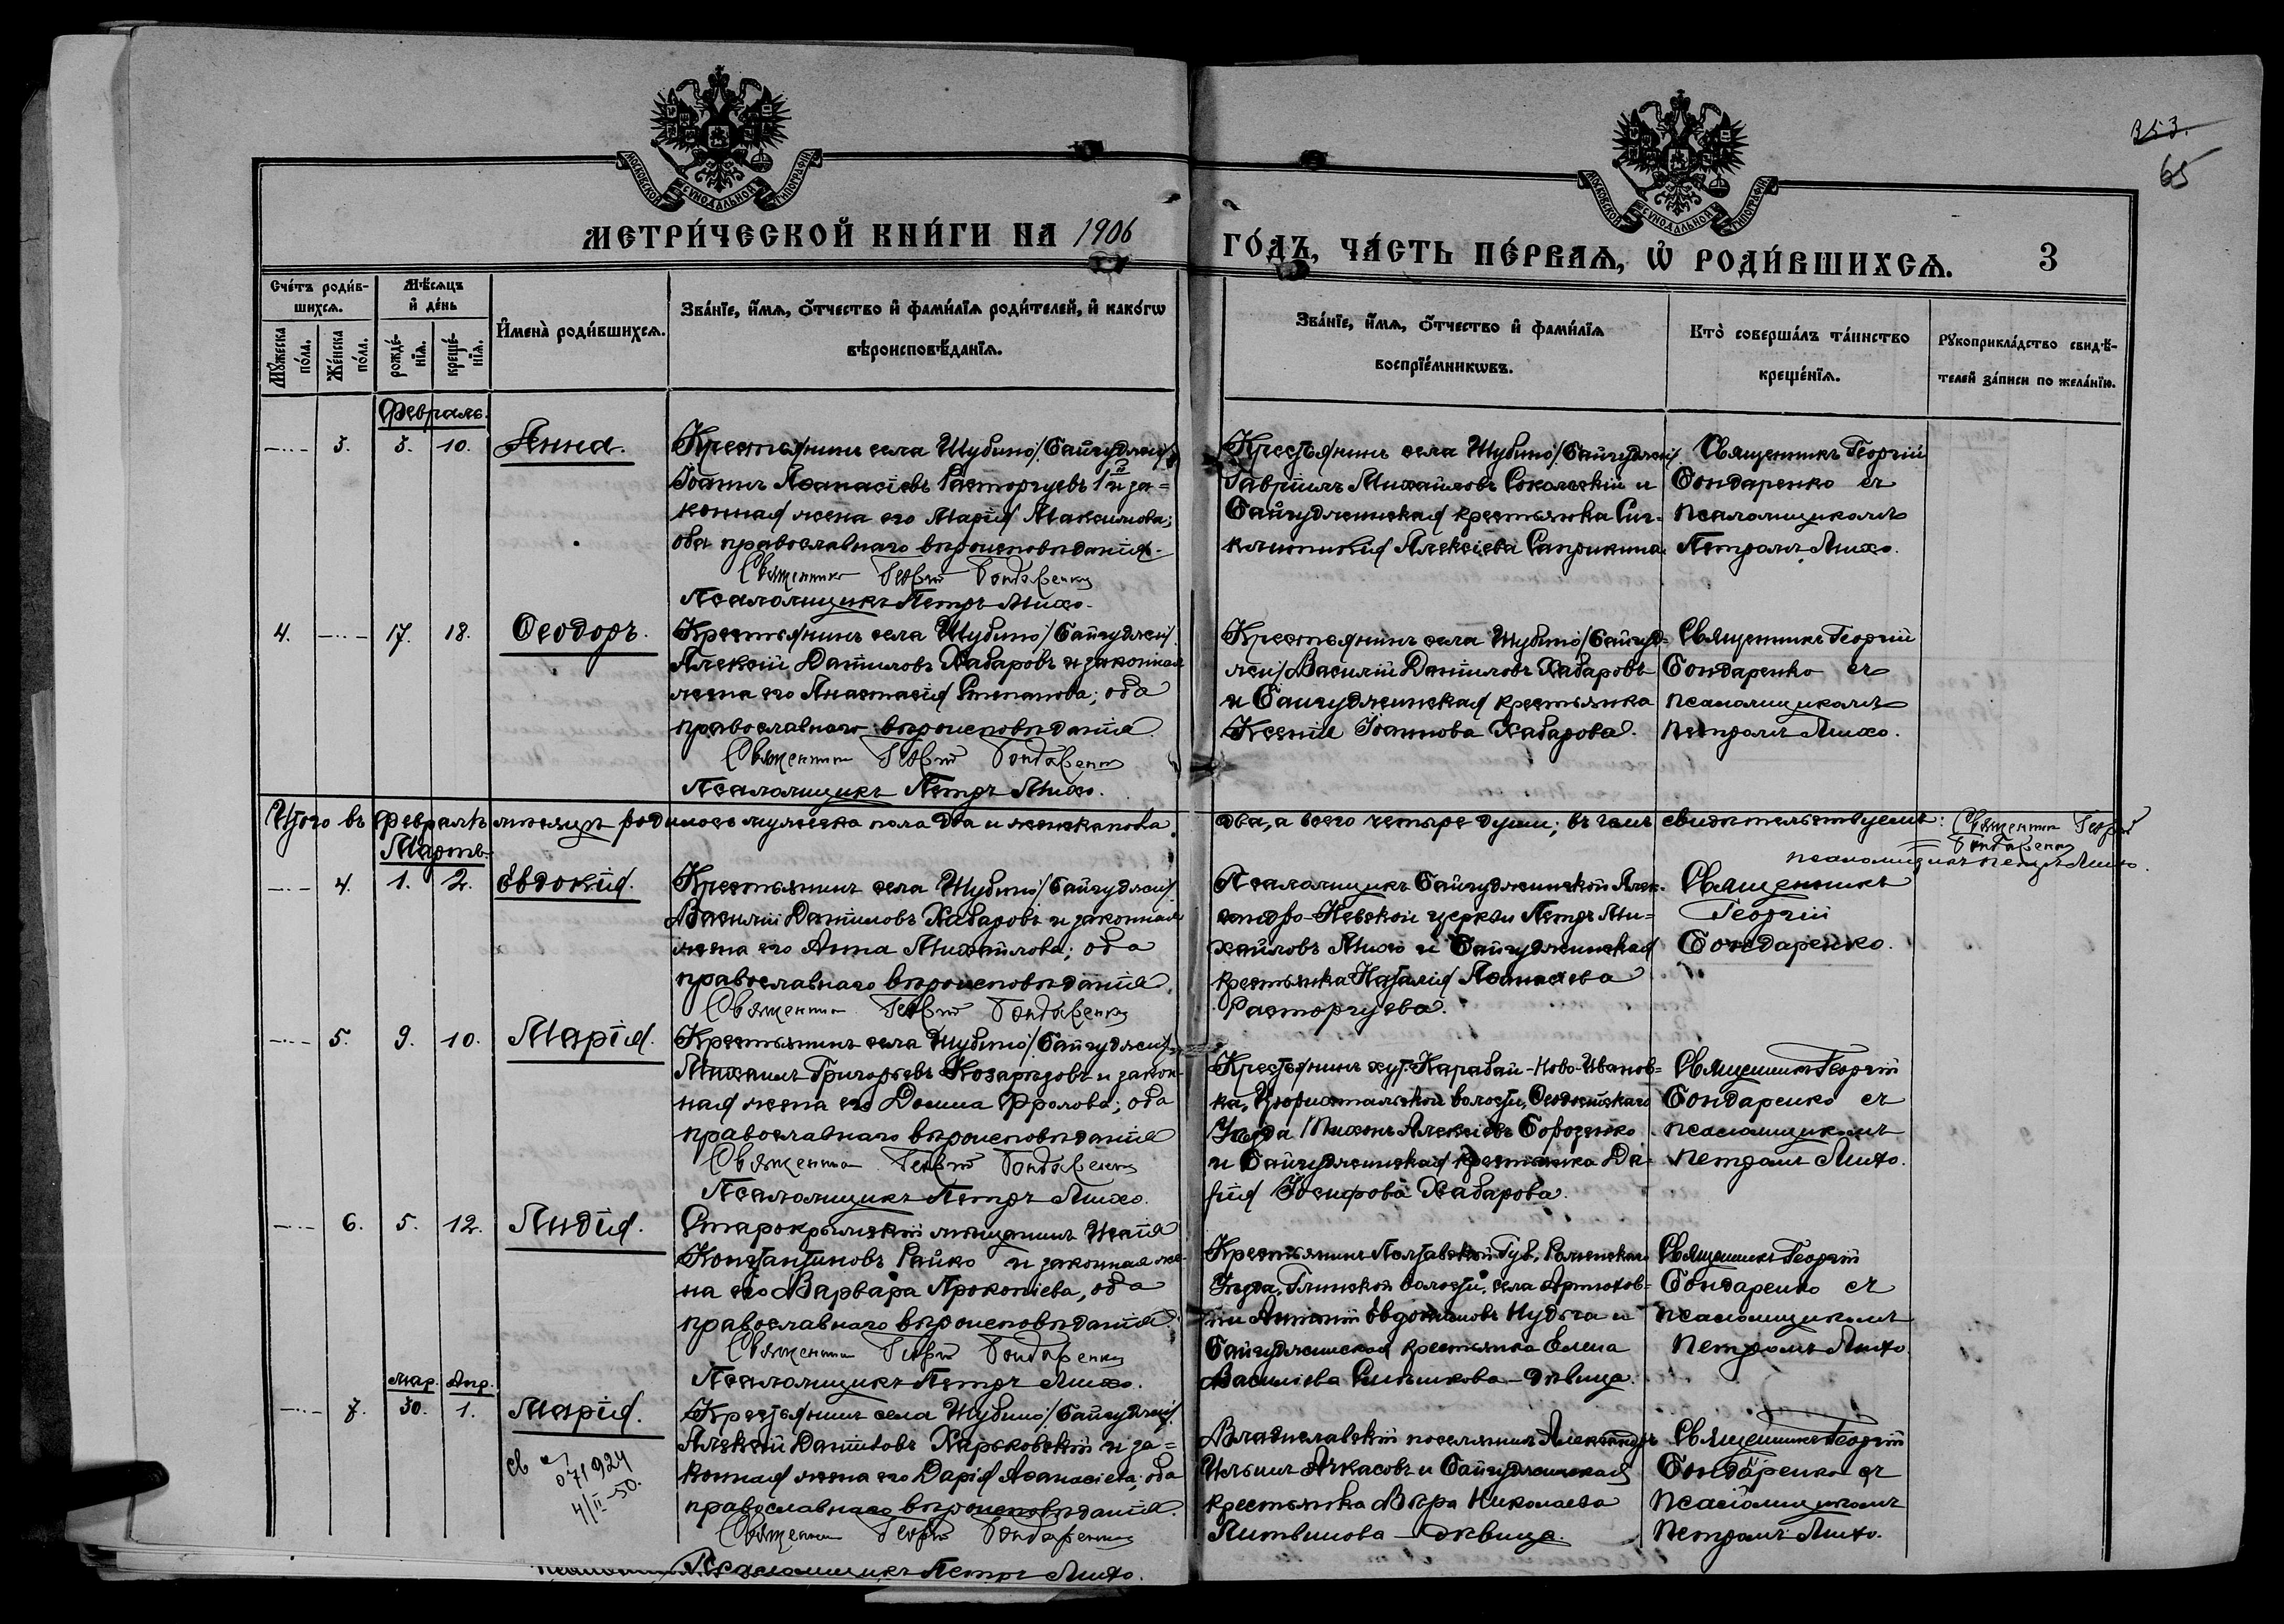 353.
65
МОСКОВСКОЙ СѴНОДАЛЬНОЙ ТИПОГРАФІИ
МОСКОВСКОЙ СѴНОДАЛЬНОЙ ТИПОГРАФІИ
МЕТРИ́ЧЕСКОЙ КНИ́ГИ НА 1906
ГО́ДЪ, ЧА́СТЬ ПЕ́РВАѦ, Ѡ҆ РОДИ́ВШИХСѦ. 3
Сче́тъ роди́в-
шихсѧ.
Мꙋ́жеска по́ла.
Же́нска по́ла.
Мѣ́сѧцъ
и҆ де́нь
рожде́-
нїѧ.
креще́-
нїѧ.
И҆мена̀ роди́вшихсѧ.
Зва́нїе, и҆́мѧ, ѻ҆́тчество и҆ фами́лїѧ роди́телей, и҆ како́гѡ
вѣроисповѣ́данїѧ.
Зва́нїе, и҆́мѧ, ѻ҆́тчество и҆ фами́лїѧ
воспрїе́мникѡвъ.
Кто̀ соверша́лъ та́инство
креще́нїѧ.
Рꙋкоприкла́дство свидѣ́-
телей за́писи по жела́нїю.
Февраль.
3. 3. 10. Анна.
Крестьянинъ села Шубино /Байгуджи/
Іоаннъ Аѳанасіевъ Расторгуевъ 2й и за=
конная жена его Марія Максимова;
оба православнаго вѣроисповѣданія.
Священникъ Георгій Бондаренко
Псаломщикъ Петръ Михо.
Крестьянинъ села Шубино /Байгуджи/
Гавріилъ Михаиловъ Соколовскій и
Байгуджинская крестьянка Син-
клитикія Алексіева Саприкина.
Священникъ Георгій
Бондаренко съ
псаломщикомъ
Петромъ Михо.
4. 17. 18. Ѳеодоръ.
Крестьянинъ села Шубино /Байгуджи/
Алексій Даниловъ Хабаровъ и законная
жена его Анастасія Степанова; оба
православнаго вѣроисповѣданія.
Священникъ Георгій Бондаренко
Псаломщикъ Петръ Михо.
Крестьянинъ села Шубино /Байгуд-
жи/ Василій Даниловъ Хабаровъ
и Байгуджинская крестьянка
Ксенія Іоаннова Хабарова.
Священникъ Георгій
Бондаренко съ
псаломщикомъ
Петромъ Михо.
Итого въ Февралѣ мѣсяцѣ родилось мужеска пола два и женска пола
два, а всего четыре души; въ чемъ свидѣтельствуемъ: Священникъ Георгій
Бондаренко
псаломщикъ Петръ Михо.
Мартъ.
4. 1. 2. Евдокія.
Крестьянинъ села Шубино /Байгуджи/
Василій Даниловъ Хабаровъ и законная
жена его Анна Михаилова; оба
православнаго вѣроисповѣданія.
Священникъ Георгій Бондаренко
Псаломщикъ Байгуджинской Алек-
сандро-Невской церкви Петръ Ми-
хайловъ Михо и Байгуджинская
крестьянка Наталія Аѳанасіева
Расторгуева.
Священникъ
Георгій
Бондаренко.
5. 9. 10. Марія.
Крестьянинъ села Шубино /Байгуджи/
Михаилъ Григорьевъ Козарѣзовъ и закон-
ная жена его Домна Фролова; оба
православнаго вѣроисповѣданія
Священникъ Георгій Бондаренко
Псаломщикъ Петръ Михо.
Крестьянинъ хут. Карабай-Ново-Иванов-
ка, Цюрихтальской волости, Ѳеодосійскаго
Уѣзда Тихонъ Алексіевъ Бороденко
и Байгуджинская крестьянка Да-
рія Іосифова Хабарова.
Священникъ Георгій
Бондаренко съ
псаломщикомъ
Петромъ Михо.
6. 5. 12. Лидія.
Старокрымскій мѣщанинъ Исаія
Константиновъ Райко и законная же-
на его Варвара Прокопіева, оба
православнаго вѣроисповѣданія.
Священникъ Георгій Бондаренко
Псаломщикъ Петръ Михо.
Крестьянинъ Полтавской Губ., Роменскаго
Уѣзда, Глинской волости, села Артюхов-
ки Антоній Евдокимовъ Нудьга и
Байгуджинская крестьянка Елена
Василіева Синшикова - дѣвица.
Священникъ Георгій
Бондаренко съ
псаломщикомъ
Петромъ Михо.
Мар. Апр.
7. 30. 1. Марія.
Крестьянинъ села Шубино /Байгуджи/
Алексій Даниловъ Харьковскій и за=
конная жена его Дарія Аѳанасіева; оба
православнаго вѣроисповѣданія.
Священникъ Георгій Бондаренко
Псаломщикъ Петръ Михо.
св
071924
4/II-50.
Владиславскій поселянинъ Александръ
Ильинъ Ачкасовъ и Байгуджинская
крестьянка Вѣра Николаева
Литвинова - дѣвица.
Священникъ Георгій
Бондаренко съ
псаломщикомъ
Петромъ Михо.